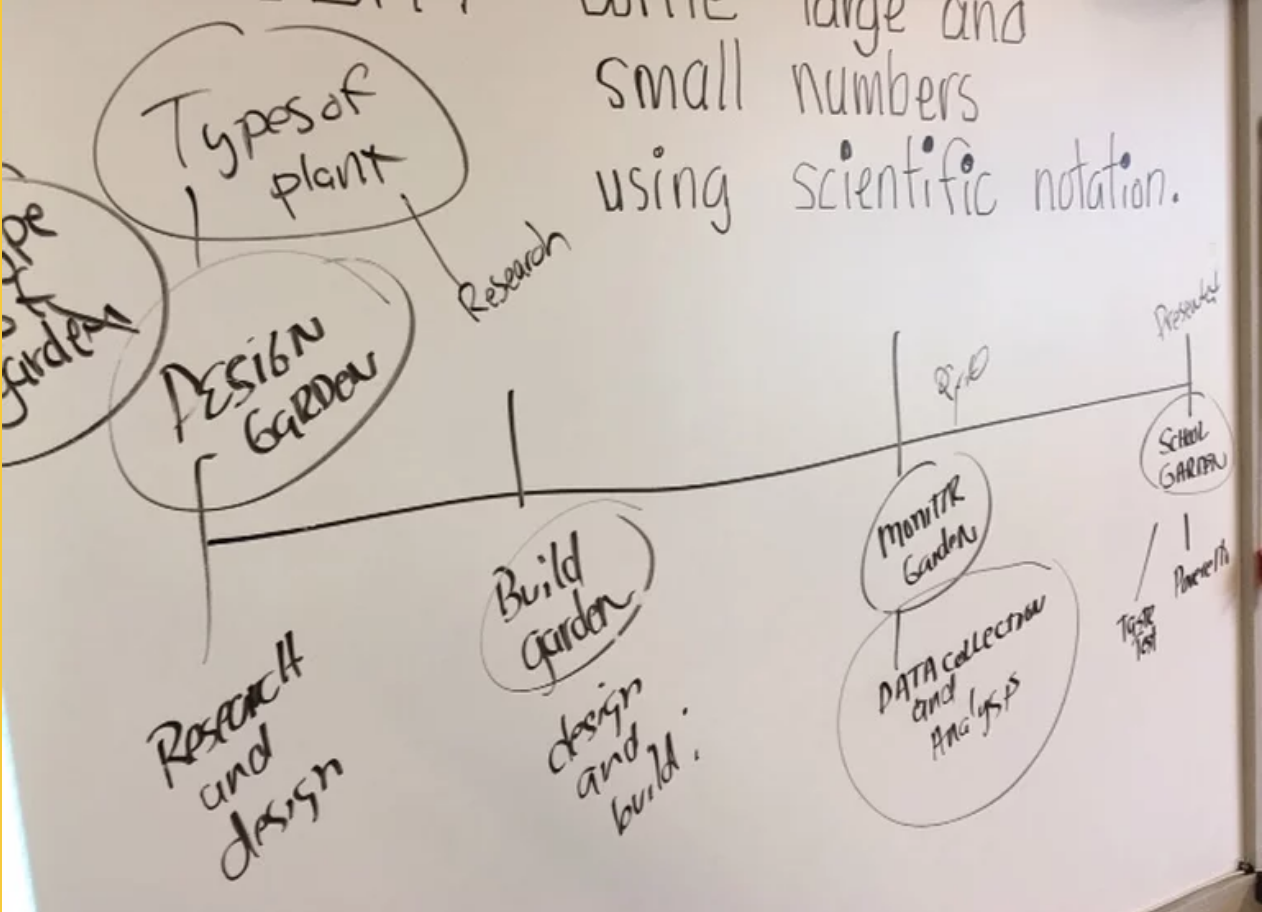 large and
small numbers
using scientific notation.
Types of
plant
Research
garden
DESIGN
GARDEN
Present
SCHOOL
GARDEN
Build
garden
MONITR
Garden
Taste
Test
DATA COLLECTION
and
Analysis
RESEARCH
and
design
design
and
build.